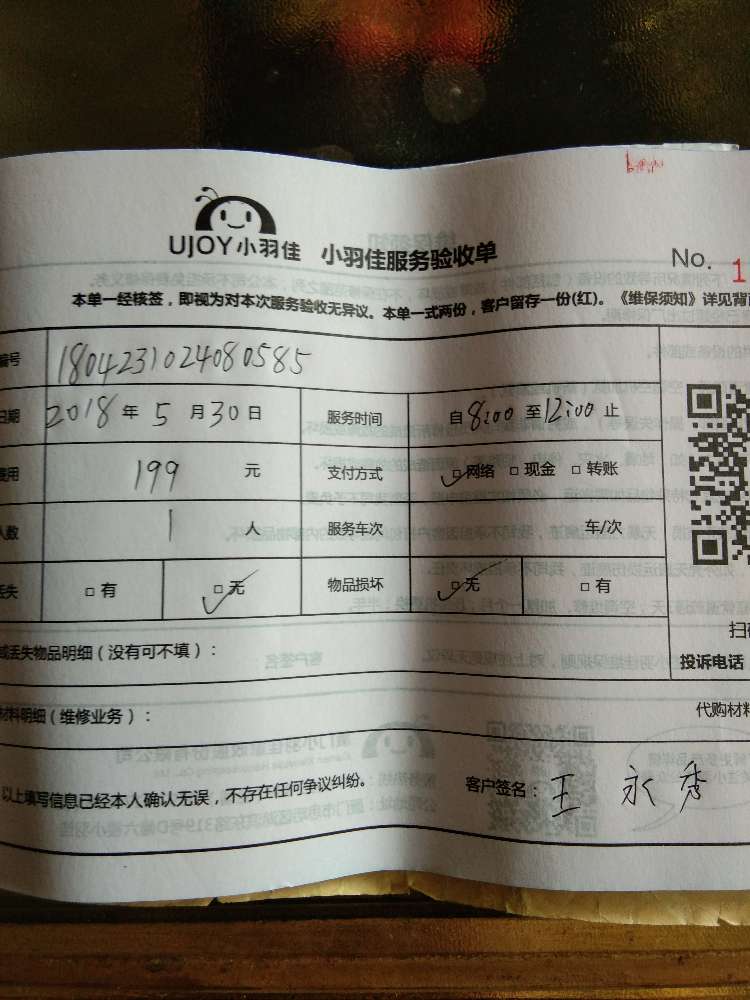 UJOY小羽佳 小羽佳服务验收单
No. 1
本单一经核签，即视为对本次服务验收无异议。本单一式两份，客户留存一份(红)。《维保须知》详见背
编号 1804231024080585
日期 2018年 5 月 30 日 服务时间 自 8:00 至 12:00 止
费用 199 元 支付方式 网络 现金 转账
人数 1 人 服务车次 车/次
丢失 有 无 物品损坏 无 有
扫
或丢失物品明细（没有可不填）： 投诉电话
材料明细（维修业务）： 代购材料
以上填写信息已经本人确认无误，不存在任何争议纠纷。 客户签名：王永秀